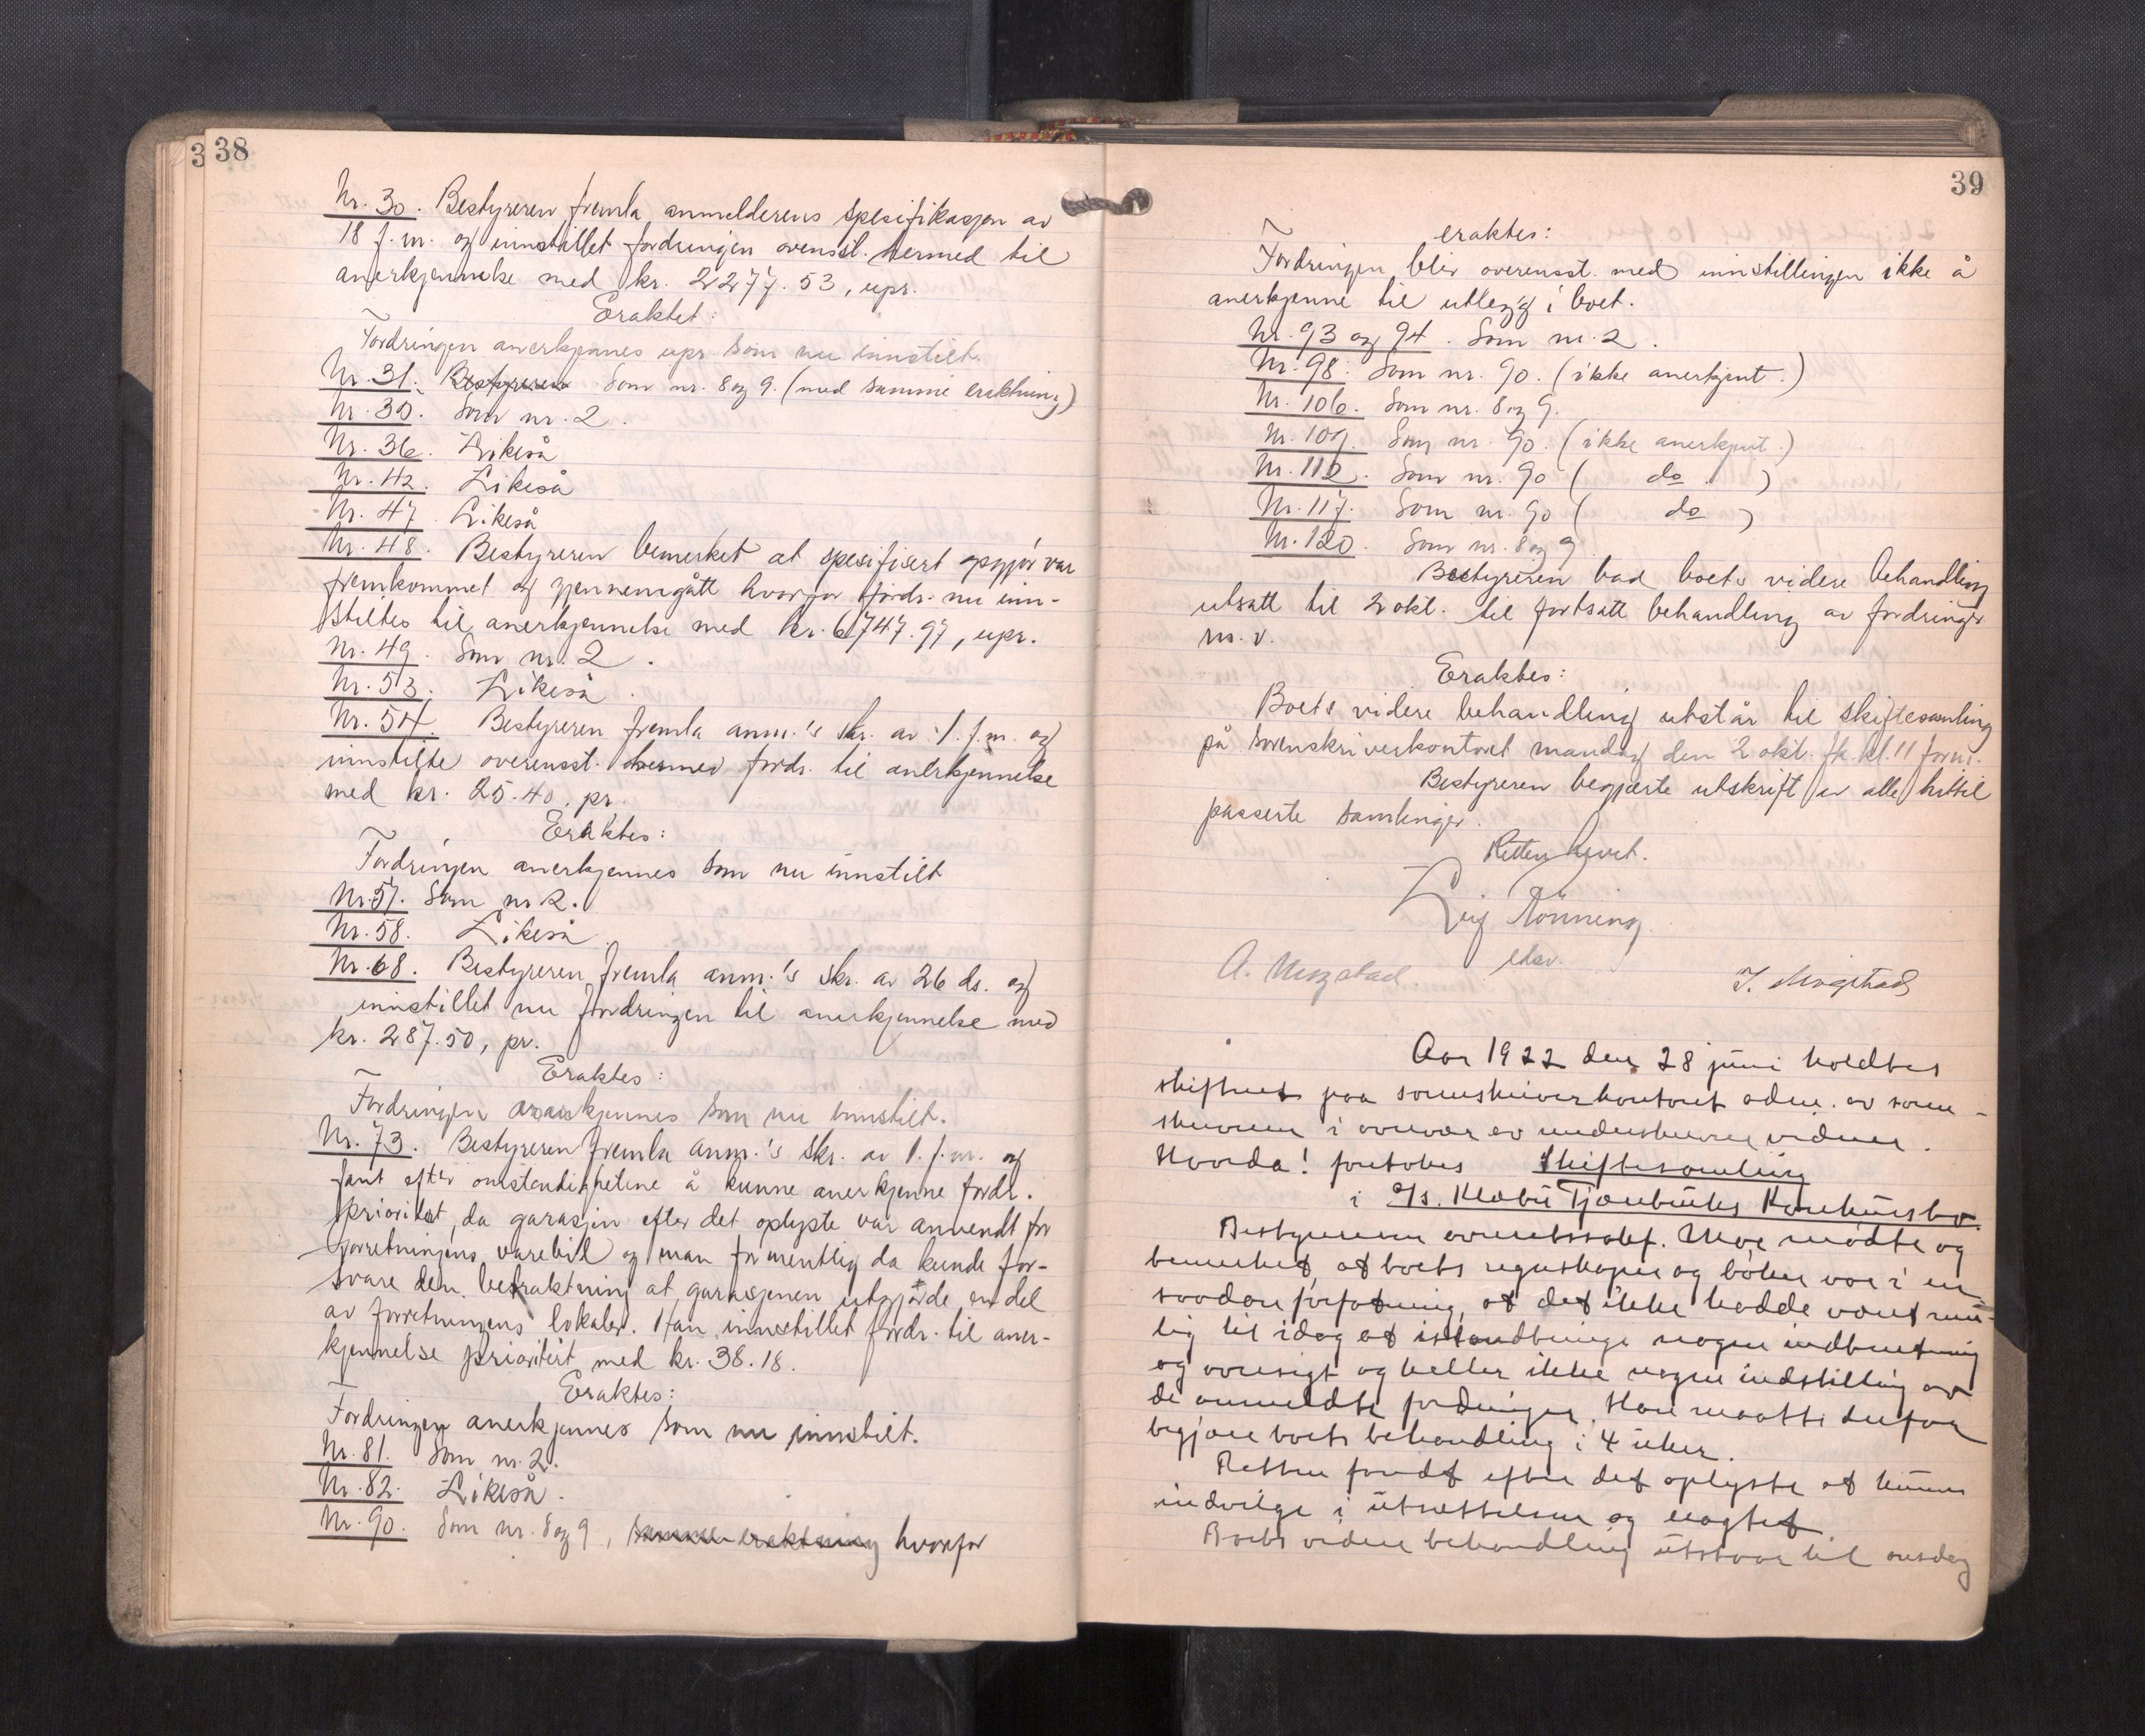 38
3
Nr. 30. Bestyreren fremla anmelderens spesifikasjon av
18 f. m. og innstillet fordringen overensst. hermed til
anerkjennelse med kr. 2277.53, upr.
Eraktet:
Fordringen anerkjennes upr. som nu innstilt.
Nr. 31. Bestyreren Som nr. 8 og 9. (med samme eraktning)
Nr. 30. Som nr. 2.
Nr. 36. Likeså
Nr. 42. Likeså
Nr. 47. Likeså
Nr. 48. Bestyreren bemerket at spesifisert opgjør var
fremkommet og gjennemgått hvorfor fords. nu inn-
stiltes til anerkjennelse med kr. 6747.97, upr.
Nr. 49. Som nr. 2.
Nr. 53. Likeså.
Nr. 54. Bestyreren fremla anm.'s skr. av 1. f. m. og
innstilte overensst. hermed fordr. til anerkjennelse
med kr. 25.40, pr.
Eraktes:
Fordringen anerkjennes som nu innstilt
Nr. 57. Som nr 2.
Nr. 58. Likeså.
Nr. 68. Bestyreren fremla anm.'s skr. av 26 ds. og
innstillet nu fordringen til anerkjennelse med
kr. 287.50, pr.
Eraktes:
Fordringen anerkjennes som nu innstilt.
Nr. 73. Bestyreren fremla anm.'s skr. av 1. f. m. og
fant efter omstendighetene å kunne anerkjenne fordr.
prioritet, da garasjen efter det oplyste var anvendt for
forretningens varebil og man formentlig da kunde for-
svare den betraktning at garasjenen utgjørde en del
av forretningens lokaler. Han innstillet fordr. til aner-
kjennelse prioritert med kr. 38.18.
Eraktes:
Fordringen anerkjennes som nu innstilt.
Nr. 81. Som nr. 2.
Nr. 82. Likeså.
Nr. 90. Som nr. 8 og 9, samme eraktning hvorfor
39
eraktes:
Fordringen blir overensst. med innstillingen ikke å
anerkjenne til utlegg i boet.
Nr. 93 og 94. Som nr. 2.
Nr. 98. Som nr. 90. (ikke anerkjent.)
Nr. 106. Som nr. 8 og 9.
Nr. 109. Som nr. 90. (ikke anerkjent.)
Nr. 112. Som nr. 90 ( do )
Nr. 117. Som nr. 90 ( do )
Nr. 120. Som nr. 8 og 9
Bestyreren bad boets videre behandling
utsatt til 2 okt. til fortsatt behandling av fordringer
m. v.
Eraktes:
Boets videre behandling utstår til skiftesamling
på sorenskriverkontoret mandag den 2 okt. fk. kl. 11 form.
Bestyreren begjærte utskrift av alle hittil
passerte samlinger.
Retten hevet.
Leif Rönning
edsv.
A. Mogstad. J. Mogstad
Aar 1922 den 28 juni holdtes
skifteret paa sorenskriverkontoret adm. av soren-
skriveren i overvær av underskrevne vidner.
Hvorda! foretokes Skiftesamling
i A/s. Klæbu Tjærebruks Konkursbo.
Bestyreren overretssakf. Moe mødte og
bemerket, at boets regnskaper og bøker var i en
saadan forfatning, at det ikke hadde været mu-
lig til idag at istandbringe nogen indberetning
og oversigt og heller ikke nogen indstilling av
de anmeldte fordringer. Han maatte derfor
begjære boets behandling i 4 uker.
Retten fandt efter det oplyste at kunne
indvilge i utsættelsen og eragtet
Boets videre behandling utstaar til onsdag